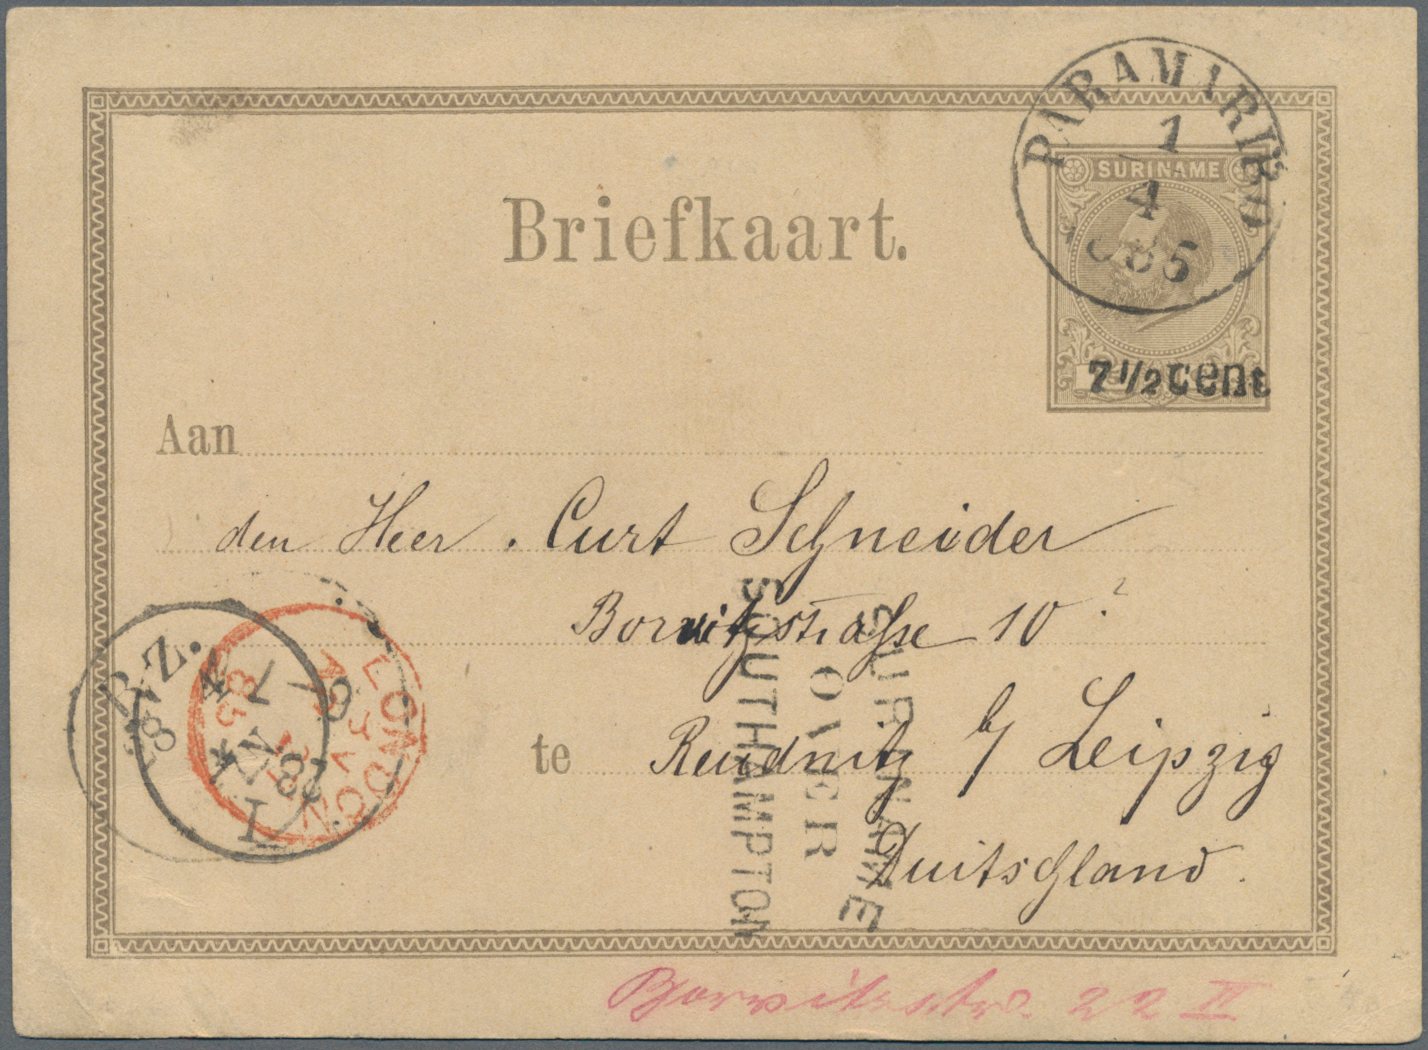 PARAMARIBO
1
4
1885
SURINAME
7 1/2 cent
Briefkaart.
Aan
den Heer. Curt Schneider
Borvitzstrasse 10
te Reudnitz b/ Leipzig
Duitschland.
SURINAME
OVER
SOUTHAMPTON
LONDON
85
Borvitzstr. 22 II